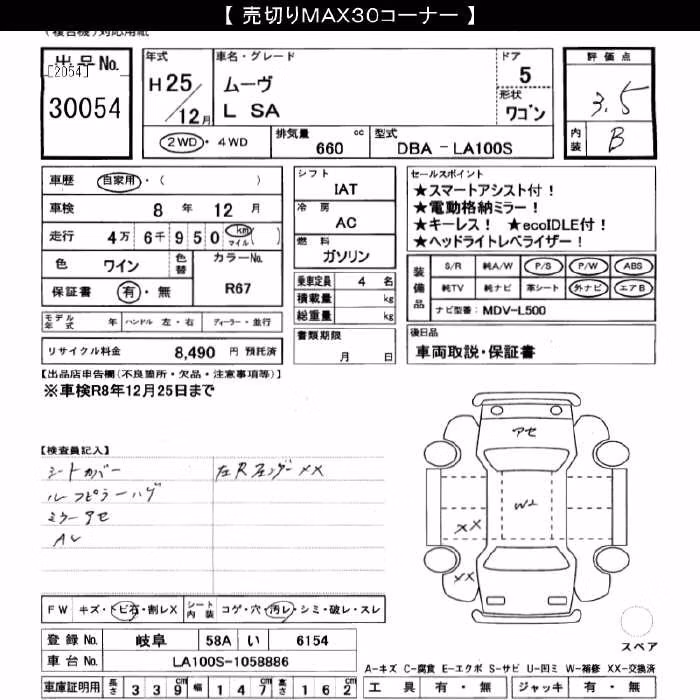 【 売切りMAX30コーナー 】
(複合機)対応用紙
出品No.
[2054]
30054
年式
H25/12月
車名・グレード
ムーヴ
L SA
ドア
5
形状
ワゴン
評価点
3.5
内装
B
2WD・4WD
排気量 660 cc
型式 DBA - LA100S
車歴 自家用・( )
車検 8年 12月
走行 4万 6千 950 km マイル( )
色 ワイン
色替
カラーNo.
R67
保証書 有・無
モデル年式 年 ハンドル 左・右 ディーラー・並行
リサイクル料金 8,490 円 預託済
シフト
IAT
冷房
AC
燃料
ガソリン
乗車定員 4 名
積載量 kg
総重量 kg
書類期限
月 日
セールスポイント
★スマートアシスト付!
★電動格納ミラー!
★キーレス! ★ecoIDLE付!
★ヘッドライトレベライザー!
装備品
S/R 純A/W P/S P/W ABS
純TV 純ナビ 革シート 外ナビ エアB
ナビ型番: MDV-L500
後日品
車両取説・保証書
【出品店申告欄(不良箇所・欠品・注意事項等)】
※車検R8年12月25日まで
【検査員記入】
シートカバー
左Rフェンダー XX
ルーフピラーハゲ
ミラーアセ
アセ
W2
XX
XX
FW キズ・トビ石・割レX
シート内装 コゲ・穴・汚レ・シミ・破レ・スレ
登録No. 岐阜 58A い 6154
車台No. LA100S-1058886
車庫証明用 長さ 339cm 幅 147cm 高さ 162cm
スペア
A-キズ C-腐食 E-エクボ S-サビ U-凹ミ W-補修 XX-交換済
工具 有・無 ジャッキ 有・無